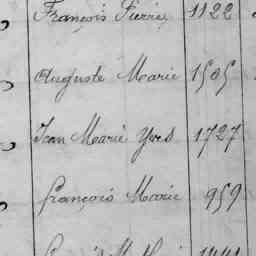 François Pierre 1122
Auguste Marie 1505
Jean Marie Yves 1727
François Marie 959